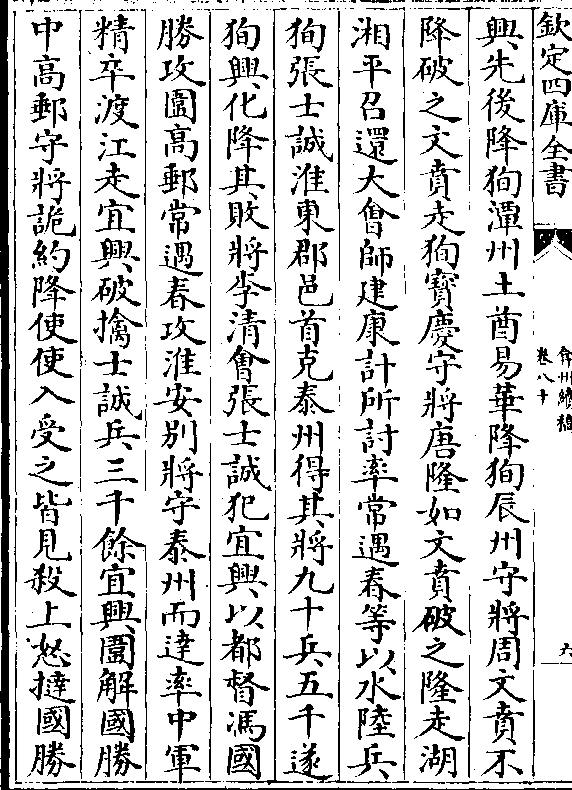 欽定四庫全書
弇州續稿
卷八十
六
興先後降狥潭州土酋易華降狥辰州守將周文賁不
降破之文賁走狥寳慶守將唐隆如文賁破之隆走湖
湘平召還大㑹師建康計所討率常遇春等以水陸兵
狥張士誠淮東郡邑首克泰州得其將九十兵五千遂
狥興化降其敗將李清㑹張士誠犯宜興以都督馮國
勝攻圍高郵常遇春攻淮安别將守泰州而達率中軍
精卒渡江走宜興破擒士誠兵三千餘宜興圍解國勝
中高郵守將詭約降使使入受之皆見殺上怒撻國勝